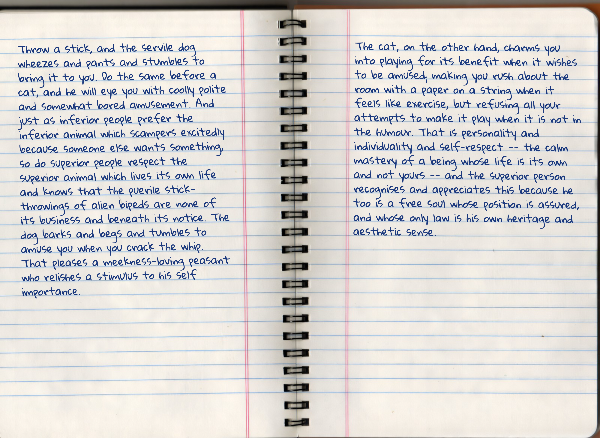 Throw a stick, and the servile dog
wheezes and pants and stumbles to
bring it to you. Do the same before a
cat, and he will eye you with coolly polite
and somewhat bored amusement. And
just as inferior people prefer the
inferior animal which scampers excitedly
because someone else wants something,
so do superior people respect the
superior animal which lives its own life
and knows that the puerile stick-
throwings of alien bipeds are none of
its business and beneath its notice. The
dog barks and begs and tumbles to
amuse you when you crack the whip.
That pleases a meekness-loving peasant
who relishes a stimulus to his self
importance.
The cat, on the other hand, charms you
into playing for its benefit when it wishes
to be amused; making you rush about the
room with a paper on a string when it
feels like exercise, but refusing all your
attempts to make it play when it is not in
the humour. That is personality and
individuality and self-respect -- the calm
mastery of a being whose life is its own
and not yours -- and the superior person
recognises and appreciates this because he
too is a free soul whose position is assured,
and whose only law is his own heritage and
aesthetic sense.